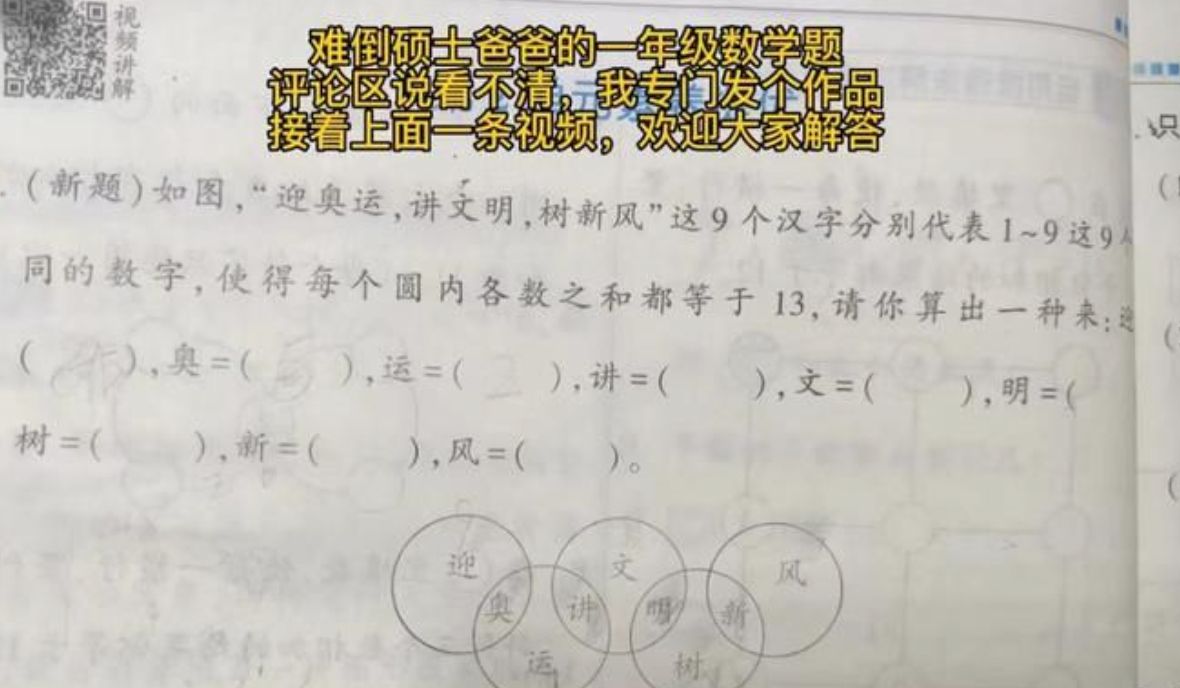 视频讲解
难倒硕士爸爸的一年级数学题
评论区说看不清，我专门发个作品
接着上面一条视频，欢迎大家解答
.(新题)如图,“迎奥运,讲文明,树新风”这9个汉字分别代表1~9这9
同的数字,使得每个圆内各数之和都等于13,请你算出一种来:迎
( ),奥=( ),运=( ),讲=( ),文=( ),明=(
树=( ),新=( ),风=( )。
迎 文 风
奥 讲 明 新
运 树
只